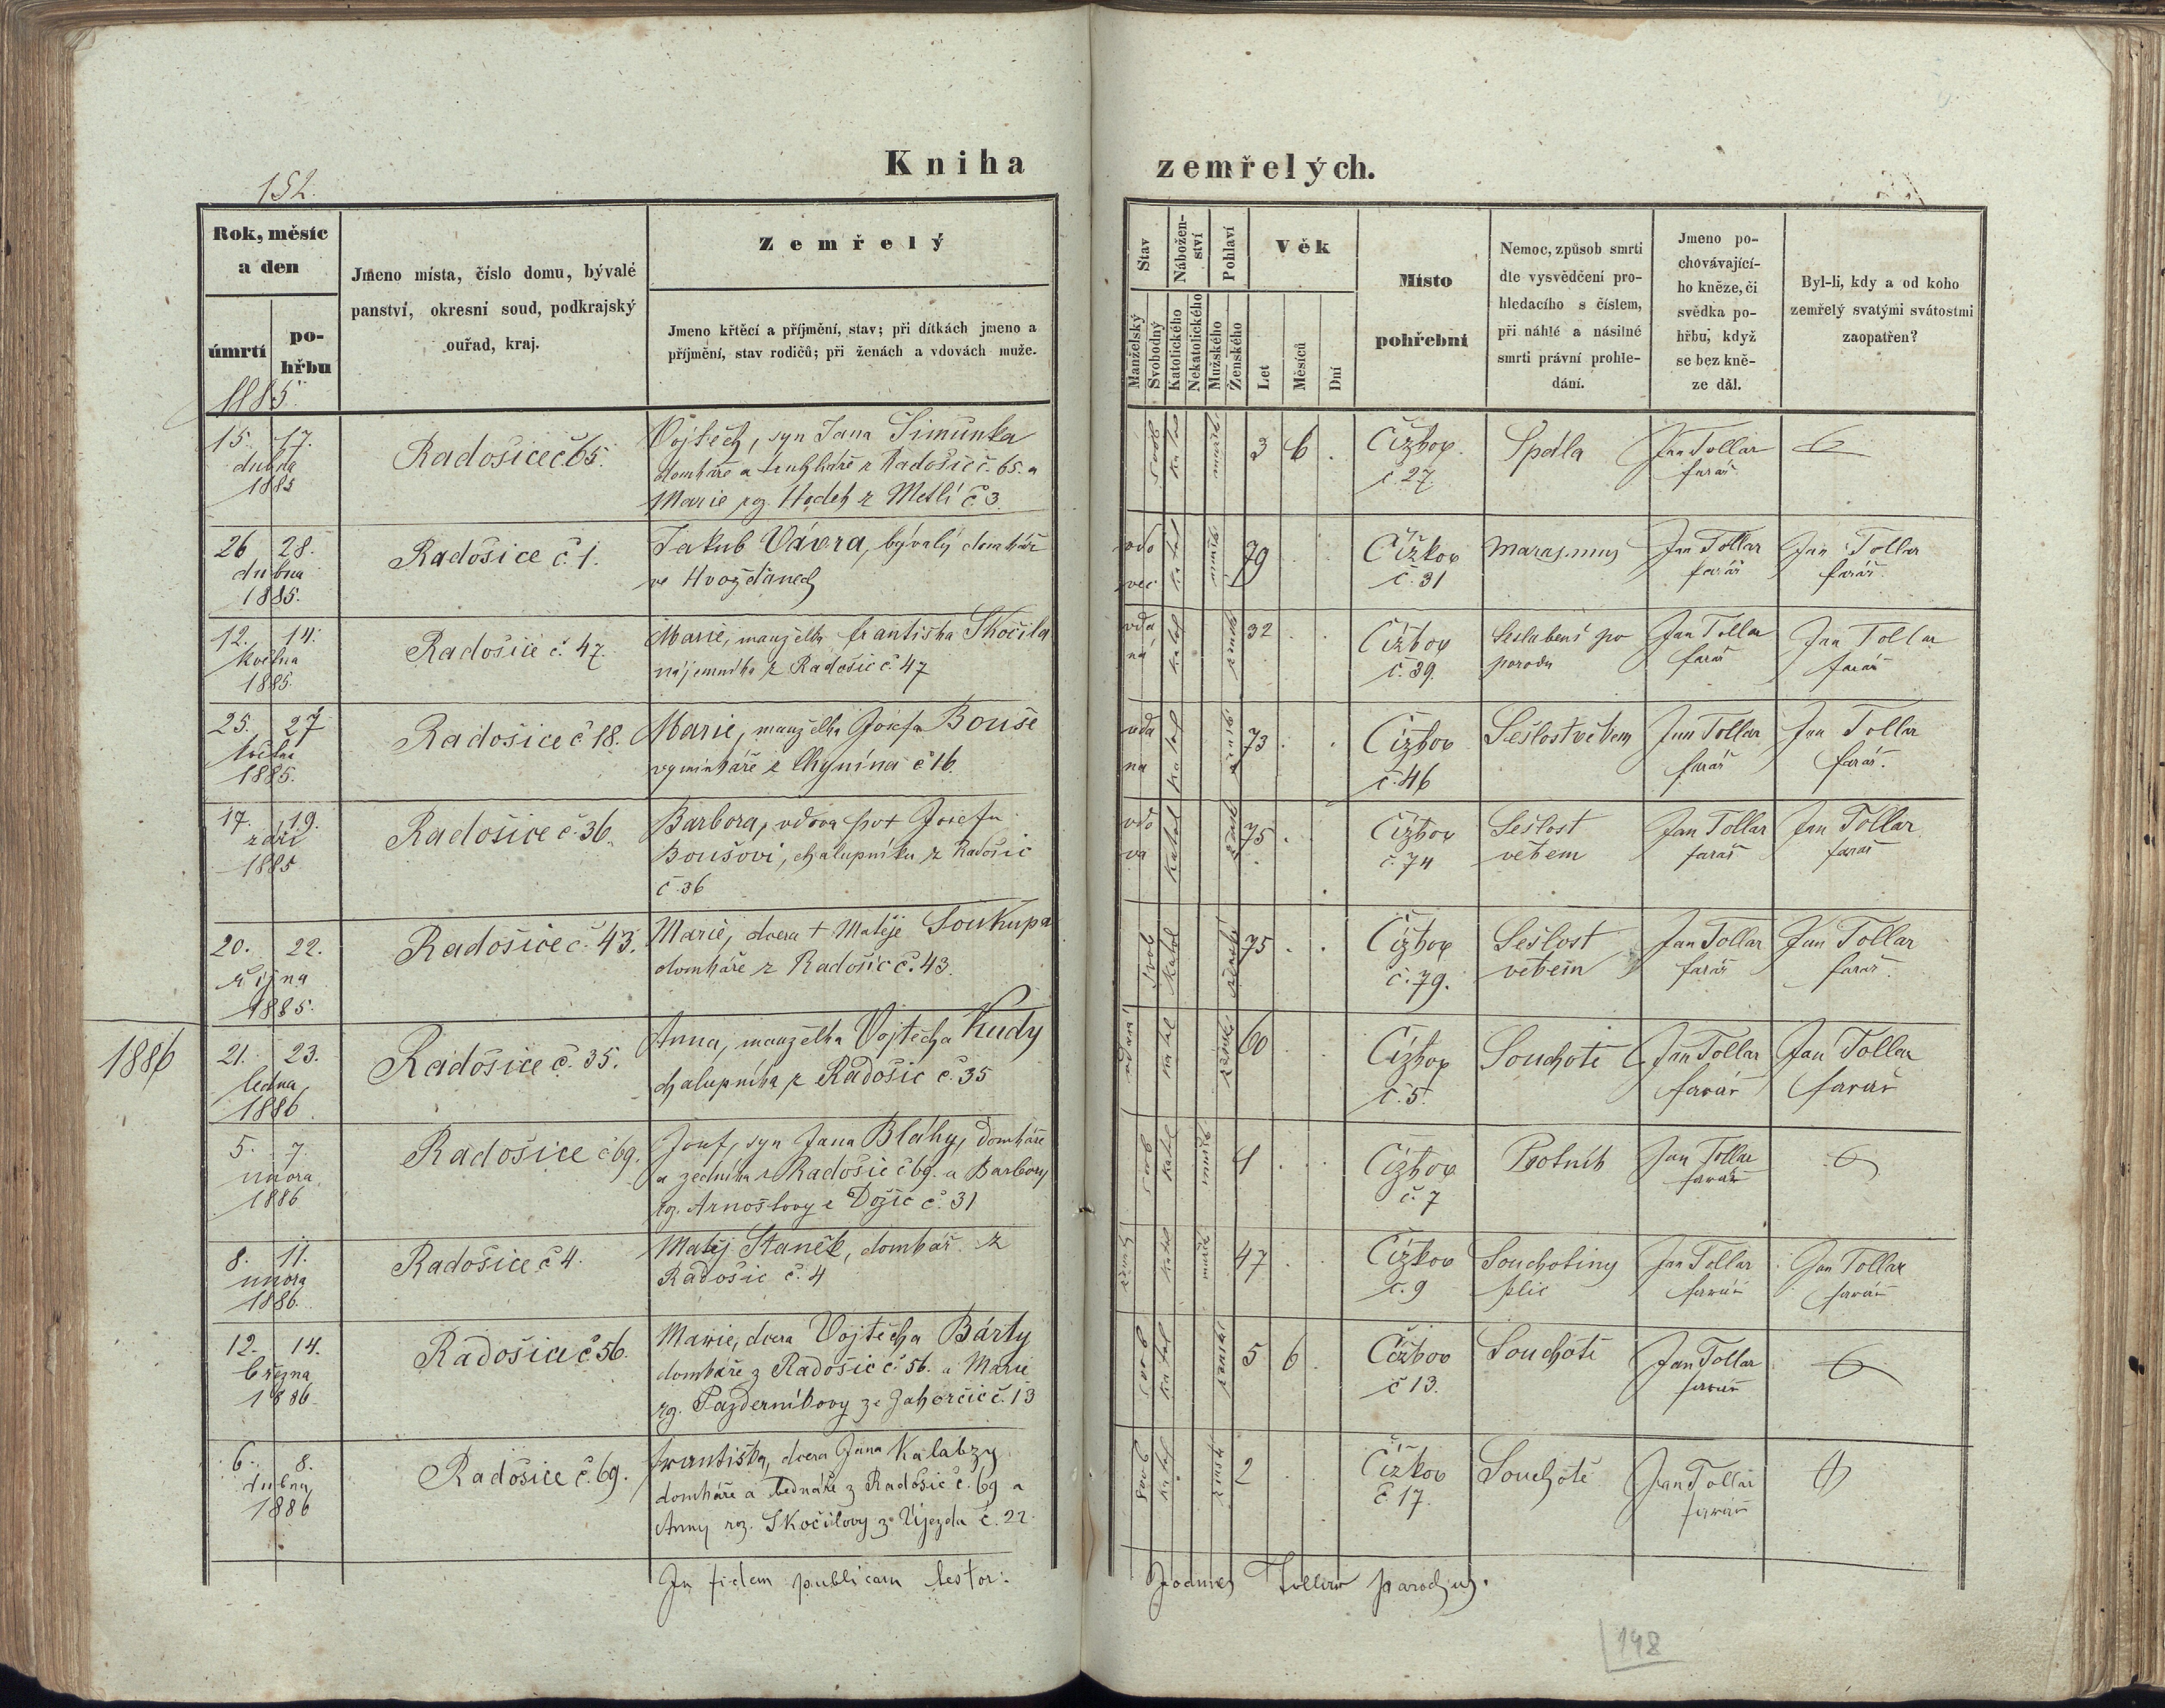 152.
Kniha zemřelých.
Rok, měsíc
a den
úmrtí
po-
hřbu
1885
Jmeno místa, číslo domu, bývalé
panství, okresní soud, podkrajský
ouřad, kraj.
Zemřelý
Jmeno křtěcí a příjmění, stav; při dítkách jmeno a
příjmění, stav rodičů; při ženách a vdovách muže.
Stav
Manželský
Svobodný
Nábožen-
ství
Katolického
Nekatolického
Pohlaví
Mužského
Ženského
Věk
Let
Měsíců
Dní
Místo
pohřební
Nemoc, způsob smrti
dle vysvědčení pro-
hledacího s číslem,
při náhlé a násilné
smrti právní prohle-
dání.
Jmeno po-
chovávající-
ho kněze, či
svědka po-
hřbu, když
se bez kně-
ze dál.
Byl-li, kdy a od koho
zemřelý svatými svátostmi
zaopatřen?
15. 17.
dubna
1885
Radošice č 65.
Vojtěch, syn Jana Šimůnka
domkáře a truhláře z Radošic č. 65. a
Marie z Metlí č 3.
svob katol mužsk 3 6
Čížkov
č. 27
Spála
Jan Tollar
farář
26 28.
dubna
1885.
Radošice č. 1.
Jakub Vávra, bývalý domkář
ve Hvožďanech
vdo
vec
katol mužsk 79
Čížkov
č. 31
Marasmus
Jan Tollar
farář
Jan Tollar
farář.
12. 14.
května
1885.
Radošice č. 47.
Marie, manželka Františka Skočila
nájemníka z Radošic č 47
vda
ná
katol žensk 32
Čížkov
č. 39.
Seslabení po
porodu
Jan Tollar
farář
Jan Tollar
farář
25. 27
května
1885.
Radošice č 18.
Marie, manželka Josefa Bouše
vyminkáře z Chynína č 16.
vda
na
katol žensk 73
Čížkov
č. 46
Sešlost věkem
Jan Tollar
farář
Jan Tollar
farář.
17. 19.
září
1885
Radošice č. 36.
Barbora, vdova po † Josefu
Boušovi, chalupníku z Radošic
č 36
vdo
va
katol žensk 75
Čížkov
č. 74
Sešlost
věkem
Jan Tollar
farář
Jan Tollar
farář
20. 22.
října
1885.
Radošice č. 43.
Marie, dcera † Matěje Soukupa
domkáře z Radošic č. 43.
svob katol ženské 75
Čížkov
č. 79.
Sešlost
věkem
Jan Tollar
farář
Jan Tollar
farář.
1886
21. 23.
ledna
1886
Radošice č. 35.
Anna, manželka Vojtěcha Kudy
chalupníka z Radošic č. 35
vdaná katol ženské 60
Čížkov
č. 5.
Souchotě
Jan Tollar
farář
Jan Tollar
farář
5. 7.
února
1886
Radošice č 69.
Josef, syn Jana Bláhy, domkáře
a zedníka z Radošic č 69. a Barbory
rz. Arnoštovy z Dožic č. 31
svob katol mužsk
Čížkov
č. 7
Psotník
Jan Tollar
farář
8. 11.
února
1886.
Radošice č 4.
Matěj Staněk, domkář z
Radošic č. 4
katol mužsk 47
Čížkov
č. 9
Souchotiny
plic
Jan Tollar
farář
Jan Tollar
farář
12. 14.
března
1886
Radošice č 56.
Marie, dcera Vojtěcha Bárty
domkáře z Radošic č 56. a Marie
rz. Pazderníkovy ze Zahorčic č. 13
svob katol ženské 5 6
Čížkov
č 13.
Souchotě
Jan Tollar
farář
6. 8.
dubna
1886
Radošice č. 69.
Františka, dcera Jana Kalabzy
domkáře a bednáře z Radošic č. 69 a
Anny roz. Skočilovy z Újezda č. 22.
svob katol žensk 2
Čížkov
č. 17.
Souchotě
Jan Tollar
farář
In fidem publicam testor:
Joannes Tollar parochus.
148